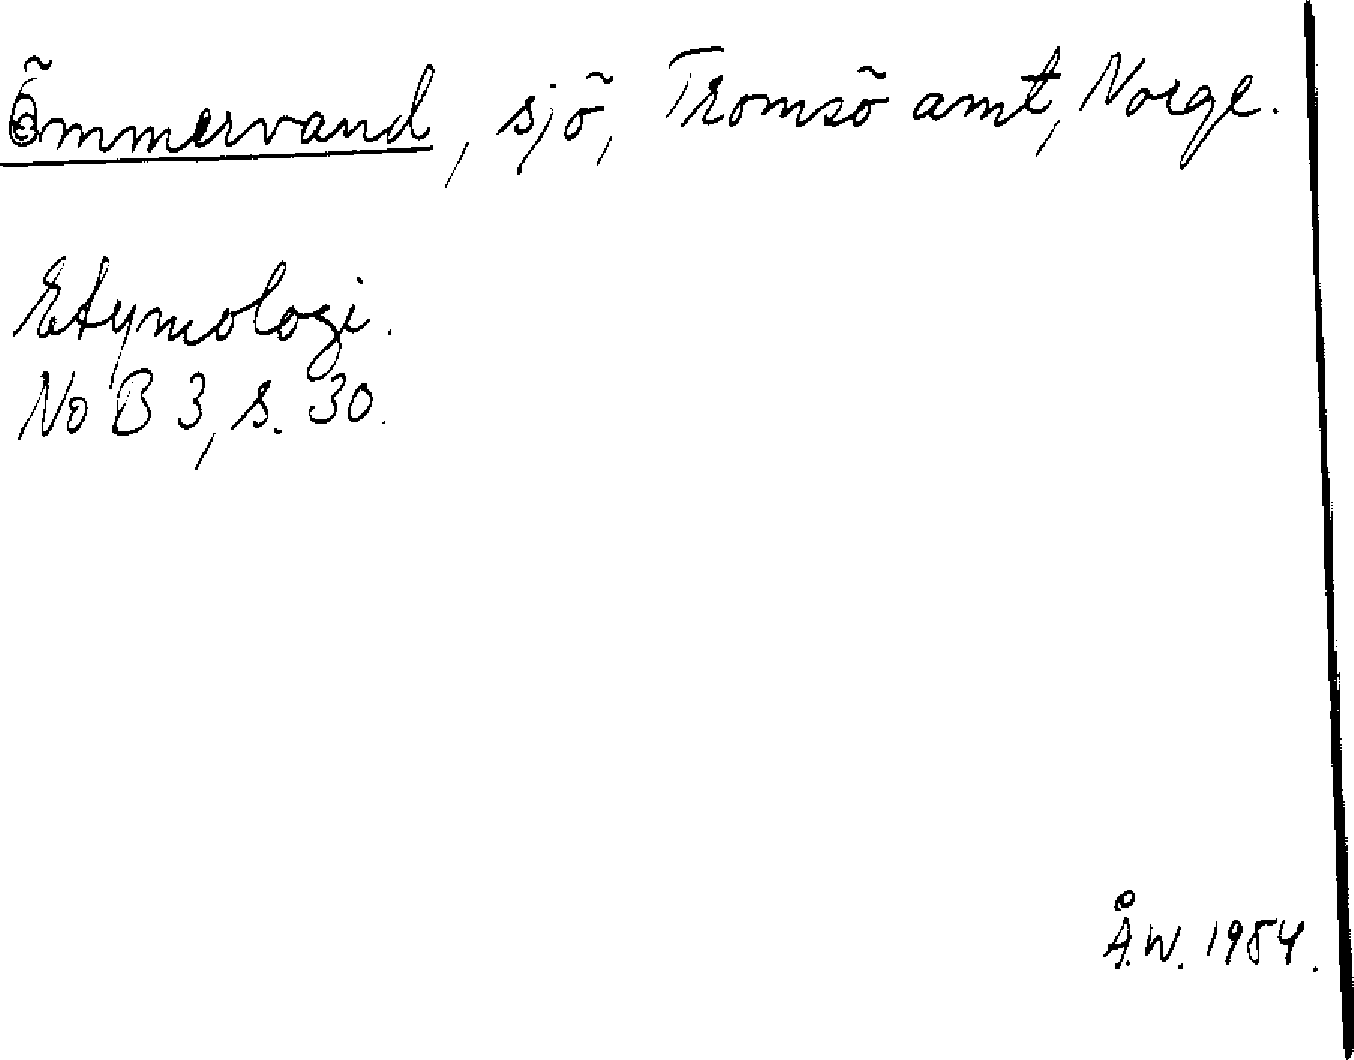 Ömmervand, sjö, Tromsö amt, Norge.
Etymologi.
No B 3, s. 30.
Å.W. 1954.